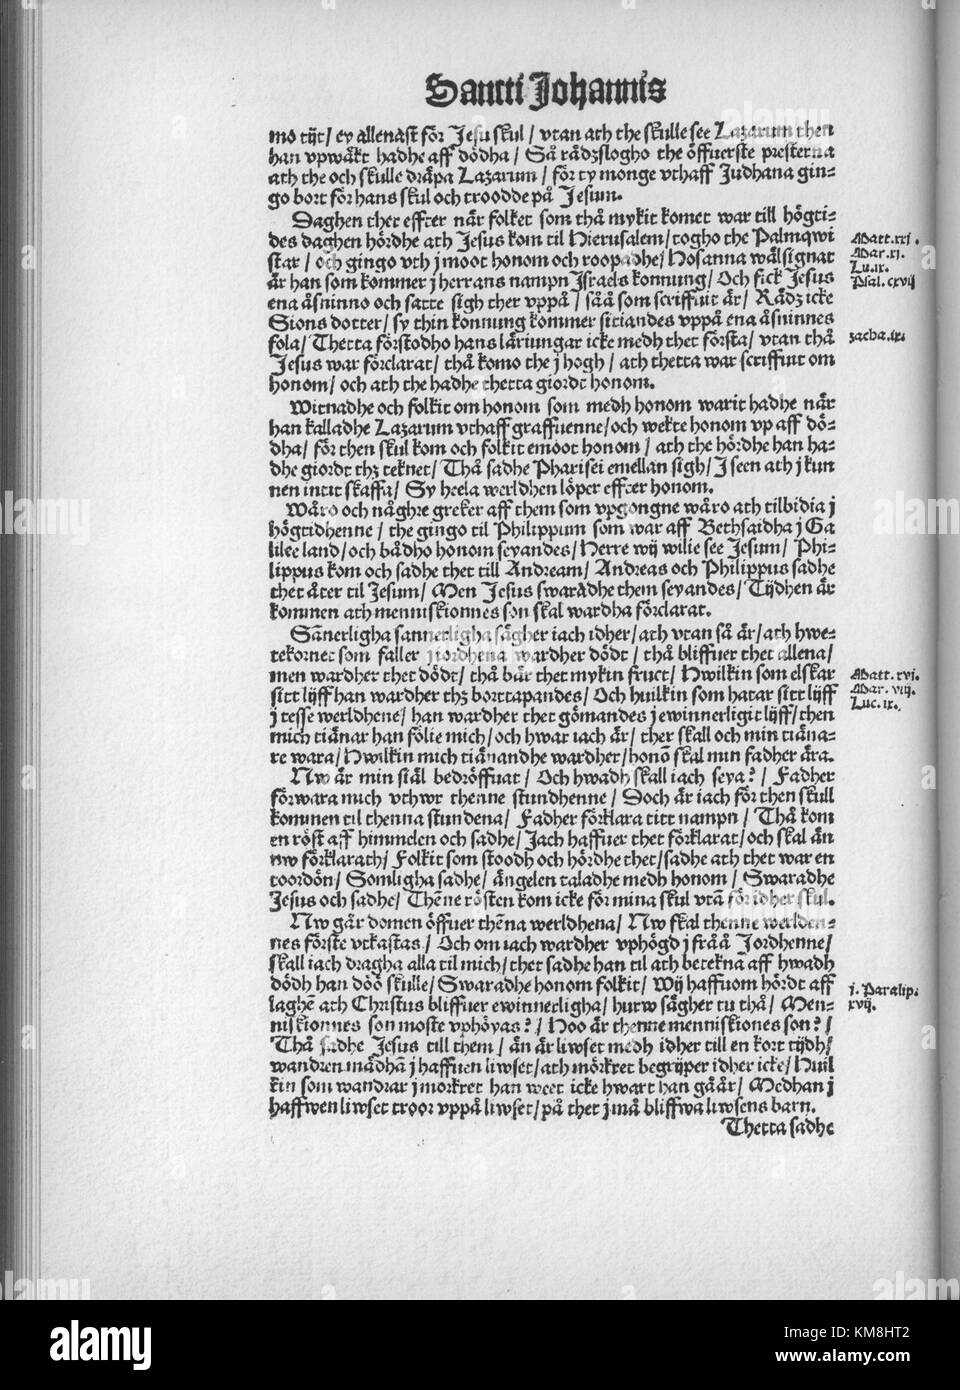 Sancti Johannis
mo tijt/ ey allenast för Jesu skul/ vtan ath the skulle see Lazarum then
han vpwäkt hadhe aff dödha/ Så rådzslogho the öffuerste presterna
ath the och skulle dräpa Lazarum/ för ty monge vthaff Judhana gin-
go bort för hans skul och troodde på Jesum.
Daghen ther effter når folket som thå mykit komet war till högti-
des daghen hördhe ath Jesus kom til Hierusalem/ togho the Palmqwi
star/ och gingo vth j moot honom och roopadhe/ Hosanna wälsignat
är han som kommer j herrans nampn Israels konnung/ Och fick Jesus
ena åsninno och satte sigh ther vppå/ såå som scriffuit är/ Rädz icke
Sions dotter/ sy thin konnung kommer sittandes vppå ena åsninnes
fola/ Thetta förstodho hans läriungar icke medh thet första/ vtan thå
Jesus war förclarat/ thå komo the j hogh/ ath thetta war scriffuit om
honom/ och ath the hadhe thetta giordt honom.
Witnadhe och folkit om honom som medh honom warit hadhe när
han kalladhe Lazarum vthaff graffuenne/ och wekte honom vp aff dö-
dha/ för then skul kom och folkit emoot honom/ ath the hördhe han ha-
dhe giordt thz teknet/ Thå sadhe Pharisei emellan sigh/ J seen ath j kun
nen intit skaffa/ Sy heela werldhen löper effter honom.
Wåro och någhre greker aff them som vpgongne wåro ath tilbidia j
högtidhenne/ the gingo til Philippum som war aff Bethsaidha j Ga
lilee land/ och bådho honom seyandes/ Herre wij wilie see Jesum/ Phi-
lippus kom och sadhe thet till Andream/ Andreas och Philippus sadhe
thet åter til Jesum/ Men Jesus swaradhe them seyandes/ Tijdhen är
kommen ath menniskionnes son skal wardha förclarat.
Sännerligha sannerligha sägher iach idher/ ath vtan så är/ ath hwe-
tekornet som faller j iordhena wardher dödt/ thå bliffuer thet allena/
men wardher thet dödt/ thå bär thet mykin fruct/ Hwilkin som elskar
sitt lijff han wardher thz borttapandes/ Och huilkin som hatar sitt lijff
j tesse werldhene/ han wardher thet gömandes j ewinnerligit lijff/ then
mich tiänar han fölie mich/ och hwar iach är/ ther skall och min tiäna-
re wara/ Hwilkin mich tiänandhe wardher/ honō skal min fadher ära.
Nw är min siäl bedröffuat/ Och hwadh skall iach seya?/ Fadher
förwara mich vthwr thenne stundhenne/ Doch är iach för then skull
kommen til thenna stundena/ Fadher förklara titt nampn/ Thå kom
en röst aff himmelen och sadhe/ Jach haffuer thet förklarat/ och skal än
nw förklarath/ Folkit som stoodh och hördhe thet/ sadhe ath thet war en
toordön/ Somligha sadhe/ ängelen taladhe medh honom/ Swaradhe
Jesus och sadhe/ Thēne rösten kom icke för mina skul vtā för idher skul.
Nw går domen öffuer thēna werldhena/ Nw skal thenne werlden-
nes förste vtkastas/ Och om iach wardher vphögd j fråå Jordhenne/
skall iach dragha alla til mich/ thet sadhe han til ath betekna aff hwadh
dödh han döö skulle/ Swaradhe honom folkit/ Wij haffuom hördt aff
laghē ath Christus bliffuer ewinnerligha/ hurw sägher tu thå/ Men-
niskionnes son moste vphöyas?/ Hoo är thenne menniskiones son?/
Thå sadhe Jesus till them/ än är liwset medh idher till en kort tijdh/
wandren mādhā j haffuen liwset/ ath mörkret begrijper idher icke/ Huil
kin som wandrar j mörkret han weet icke hwart han gåår/ Medhan j
haffwen liwset troor vppå liwset/ på thet j må bliffwa liwsens barn.
Thetta sadhe
Matt.xxi.
Mar.xi.
Lu.ix.
Psal.cxvij
zacha.ix.
Matt.xvi.
Mar.viij.
Luc.ix.
j.Paralip.
xvij.
alamy
KM8HT2
www.alamy.com